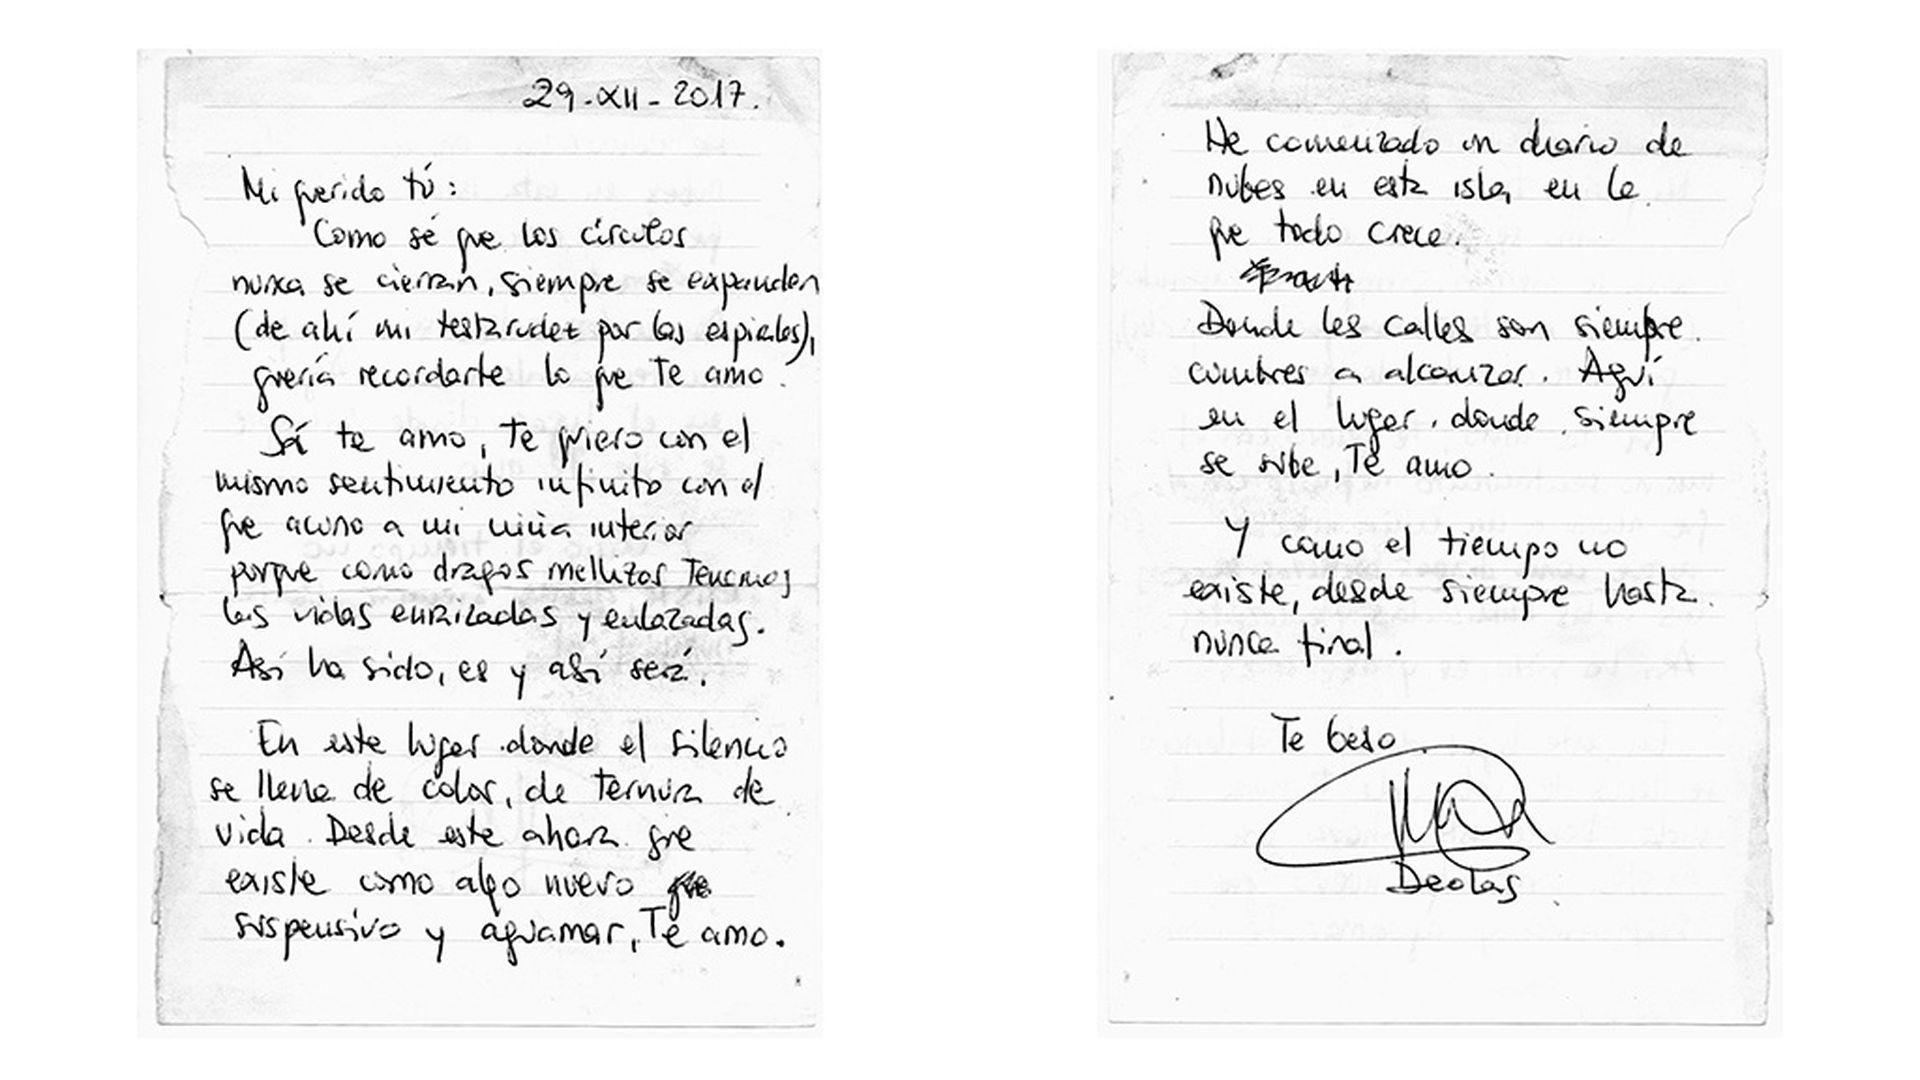 29-XII-2017.
Mi querido tú:
Como sé que los círculos
nunca se cierran, siempre se expanden
(de ahí mi testarudez por las espirales),
quería recordarte lo que te amo.
Sí te amo, te quiero con el
mismo sentimiento infinito con el
que acuno a mi niña interior
porque como dragos mellizos tenemos
las vidas enraizadas y enlazadas.
Así ha sido, es y así será.
En este lugar donde el silencio
se llena de color, de ternura de
vida. Desde este ahora que
existe como algo nuevo
suspensivo y aguamar, Te amo.
He comenzado un diario de
nubes en esta isla, en la
que todo crece.
Donde las calles son siempre
cumbres a alcanzar. Aquí
en el lugar donde siempre
se sube, Te amo.
Y como el tiempo no
existe, desde siempre hasta
nunca final.
Te beso.
Deolas